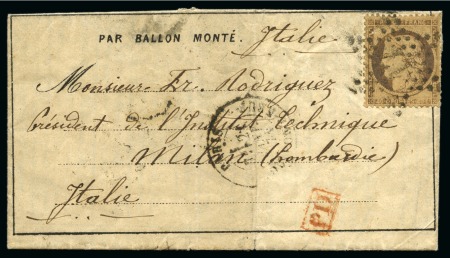 PAR BALLON MONTÉ. Italie
Monsieur Fr. Rodriguez
Président de l'Institut Technique
Milan (Lombardie)
Italie
PARIS
P.D.